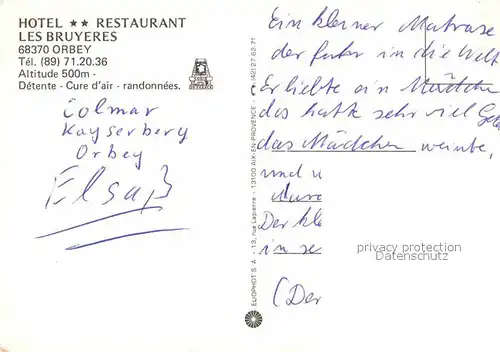 HOTEL ★★ RESTAURANT
LES BRUYERES
68370 ORBEY
Tél. (89) 71.20.36
Altitude 500m ·
Détente - Cure d'air - randonnées.
Colmar
Kayserberg
Orbey
Elsaß
EUROPHOT S.A. - 13, rue Lapierre - 13100 AIX-EN-PROVENCE - (42) 27 62 71
Ein kleiner Matrose
der fuhr in die Welt
Er liebte ein Mädchen
das hatte sehr viel Gel
das Mädchen weinte,
und u
Der kle
in se
(Der
privacy protection
Datenschutz